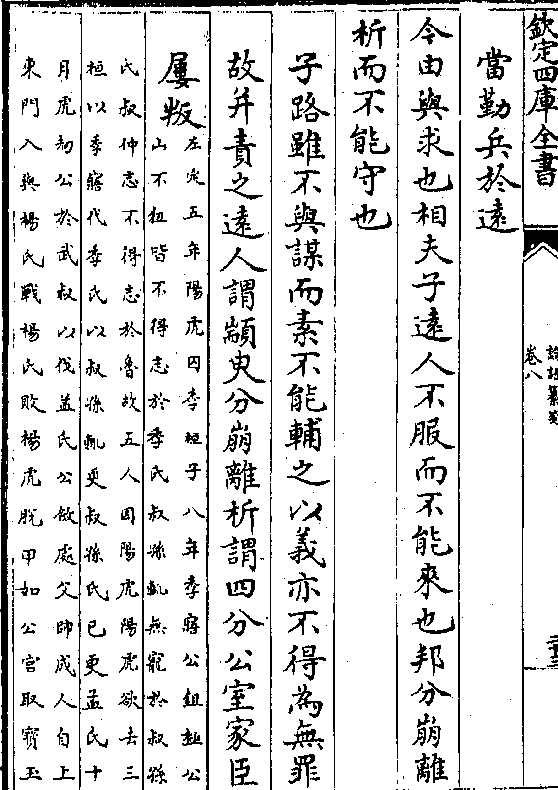 欽定四庫全書
論語纂疏
卷八
當勤兵於遠
今由與求也相夫子遠人不服而不能來也邦分崩離
析而不能守也
子路雖不與謀而素不能輔之以義亦不得為無罪
故并責之遠人謂顓臾分崩離析謂四分公室家臣
屢叛
左定五年陽虎囚季桓子八年季寤公鉏極公
山不狃皆不得志於季氏叔孫輒無寵於叔孫
氏叔仲志不得志於魯故五人因陽虎陽虎欲去三
桓以季寤代季氏以叔孫輒更叔孫氏已更孟氏十
月虎劫公於武叔以伐孟氏公斂處父帥成人自上
東門入與楊氏戰楊氏敗楊虎脫甲如公宮取寶玉